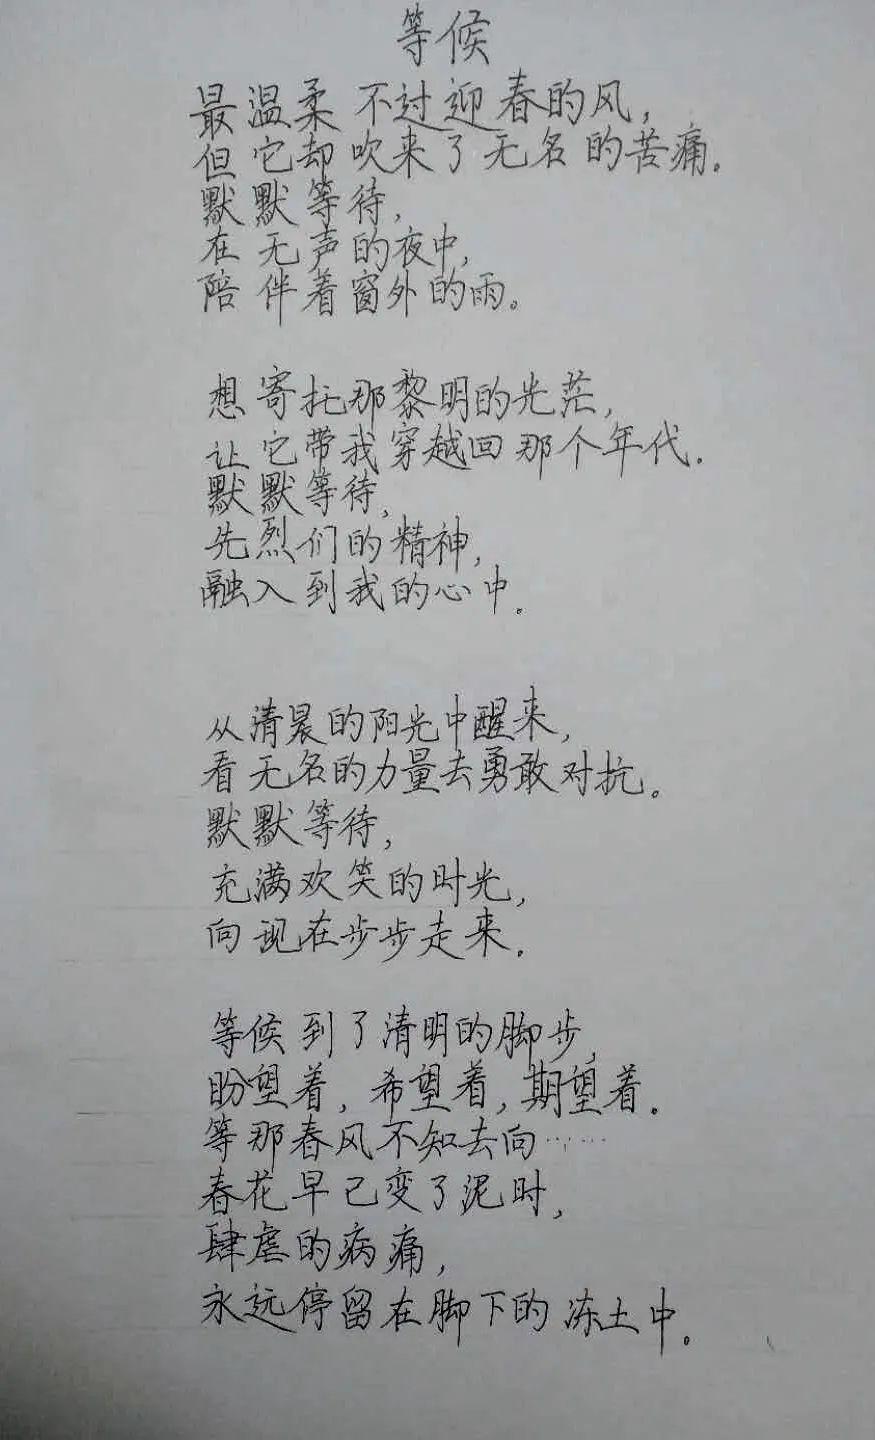 等候
最温柔不过迎春的风，
但它却吹来了无名的苦痛。
默默等待，
在无声的夜中，
陪伴着窗外的雨。
想寄托那黎明的光茫，
让它带我穿越回那个年代。
默默等待，
先烈们的精神，
融入到我的心中。
从清晨的阳光中醒来，
看无名的力量去勇敢对抗。
默默等待，
充满欢笑的时光，
向现在步步走来。
等候到了清明的脚步，
盼望着，希望着，期望着。
等那春风不知去向……
春花早已变了泥时，
肆虐的病痛，
永远停留在脚下的冻土中。